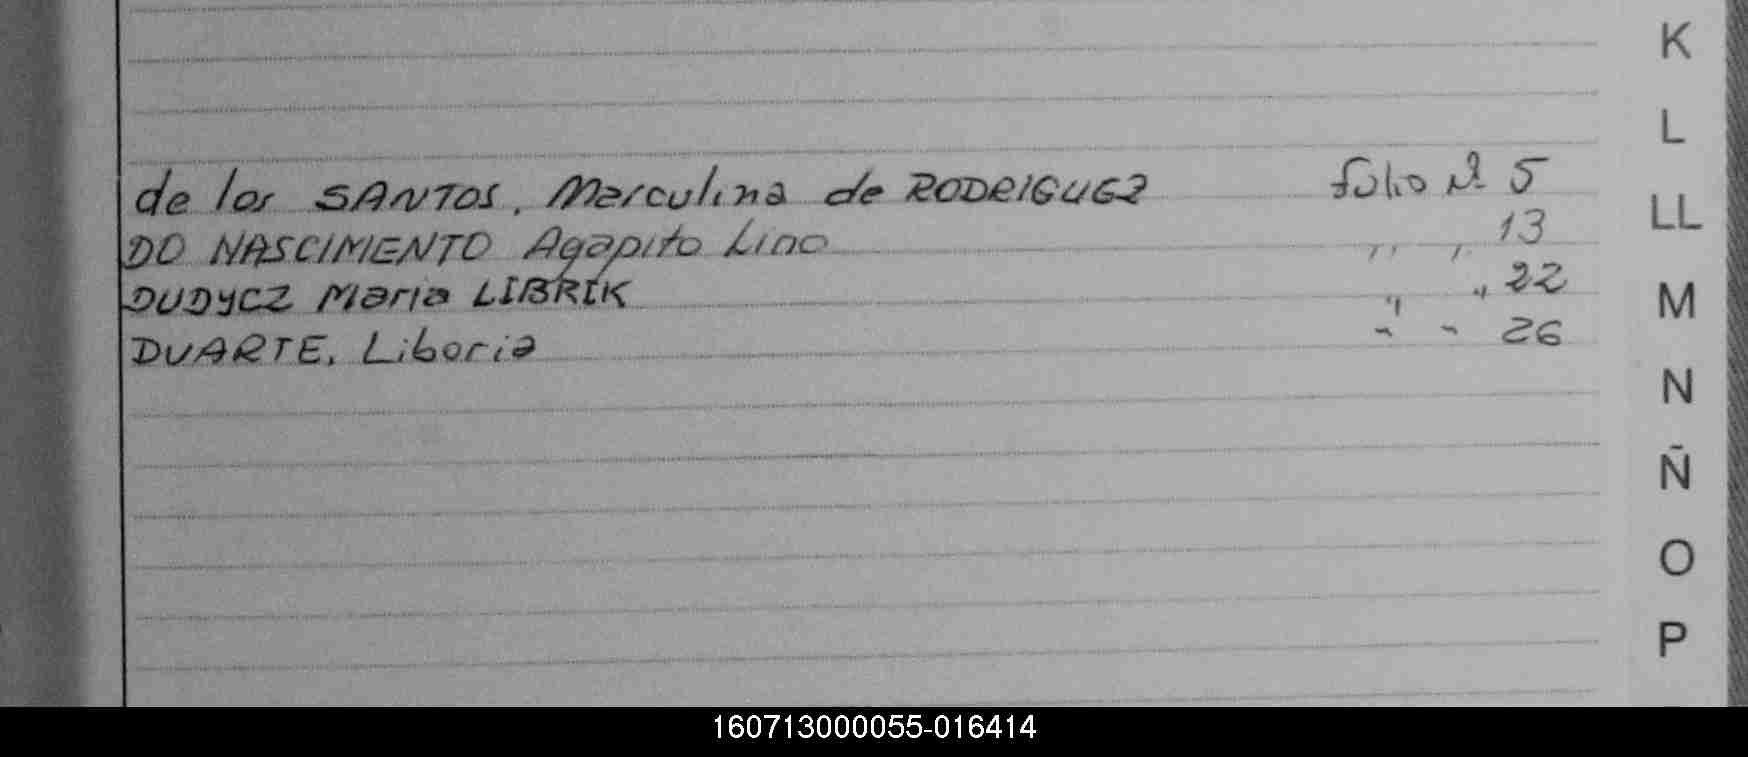 de los SANTOS, Marculina de RODRIGUEZ folio Nº 5
DO NASCIMIENTO Agapito Lino " " 13
DUDYCZ Maria LIBRIK " " 22
DUARTE, Liboria " " 26
K
L
LL
M
N
Ñ
O
P
160713000055-016414